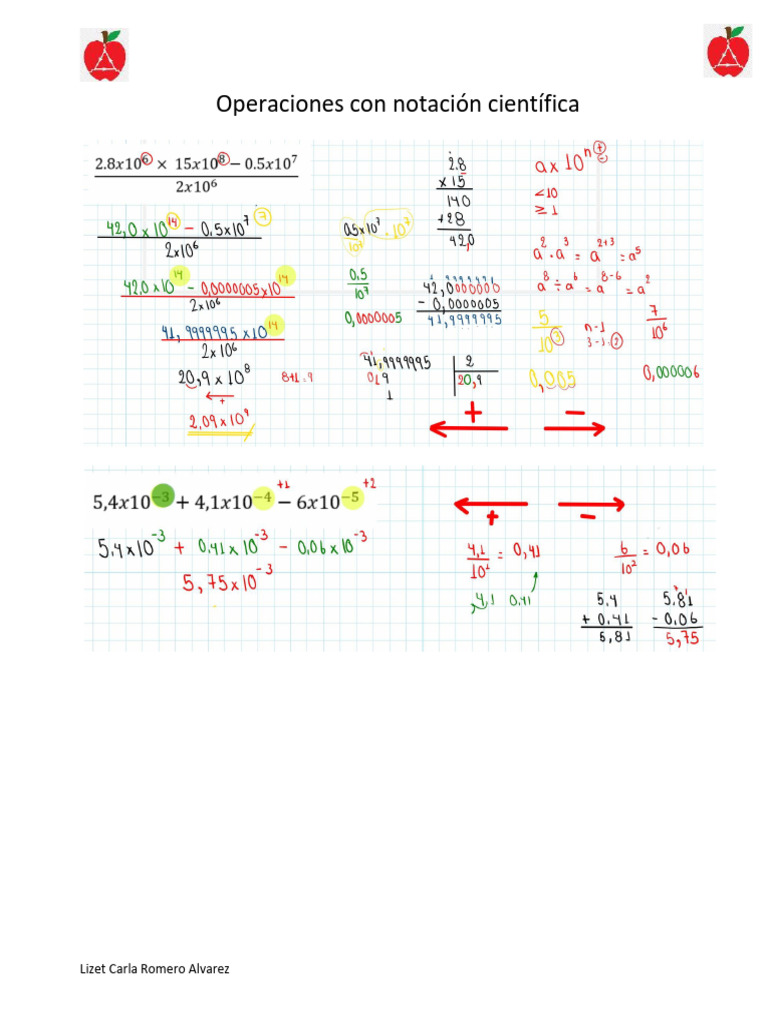 Operaciones con notación científica
2.8x10⁶ × 15x10⁸ − 0.5x10⁷
2x10⁶
42,0 x 10¹⁴ − 0,5x10⁷
2x10⁶
42,0 x 10¹⁴ − 0,0000005x10¹⁴
2x10⁶
41,9999995 x10¹⁴
2x10⁶
20,9 x 10⁸ 8+1=9
+
2,09 x 10⁹
0.5x10⁷ · 10⁷
10⁷
0.5
10⁷
0,0000005
2.8
x 15
140
+28
42,0
42,0000000
− 0,0000005
41,9999995
41,9999995 2
019 20,9
1
a x 10ⁿ + −
<10
≥ 1
a² · a³ = a²⁺³ = a⁵
a⁸ ÷ a⁶ = a⁸⁻⁶ = a²
5
10³
n-1
3-1=2
0,005
7
10⁶
0,000006
+ −
5,4x10⁻³ + 4,1x10⁻⁴ − 6x10⁻⁵
+1 +2
5,4 x10⁻³ + 0,41 x 10⁻³ − 0,06 x 10⁻³
5,75 x 10⁻³
+ −
4,1
10¹ = 0,41
4,1 0,41
6
10² = 0,06
5,4
+ 0,41
5,81
5,81
− 0,06
5,75
Lizet Carla Romero Alvarez